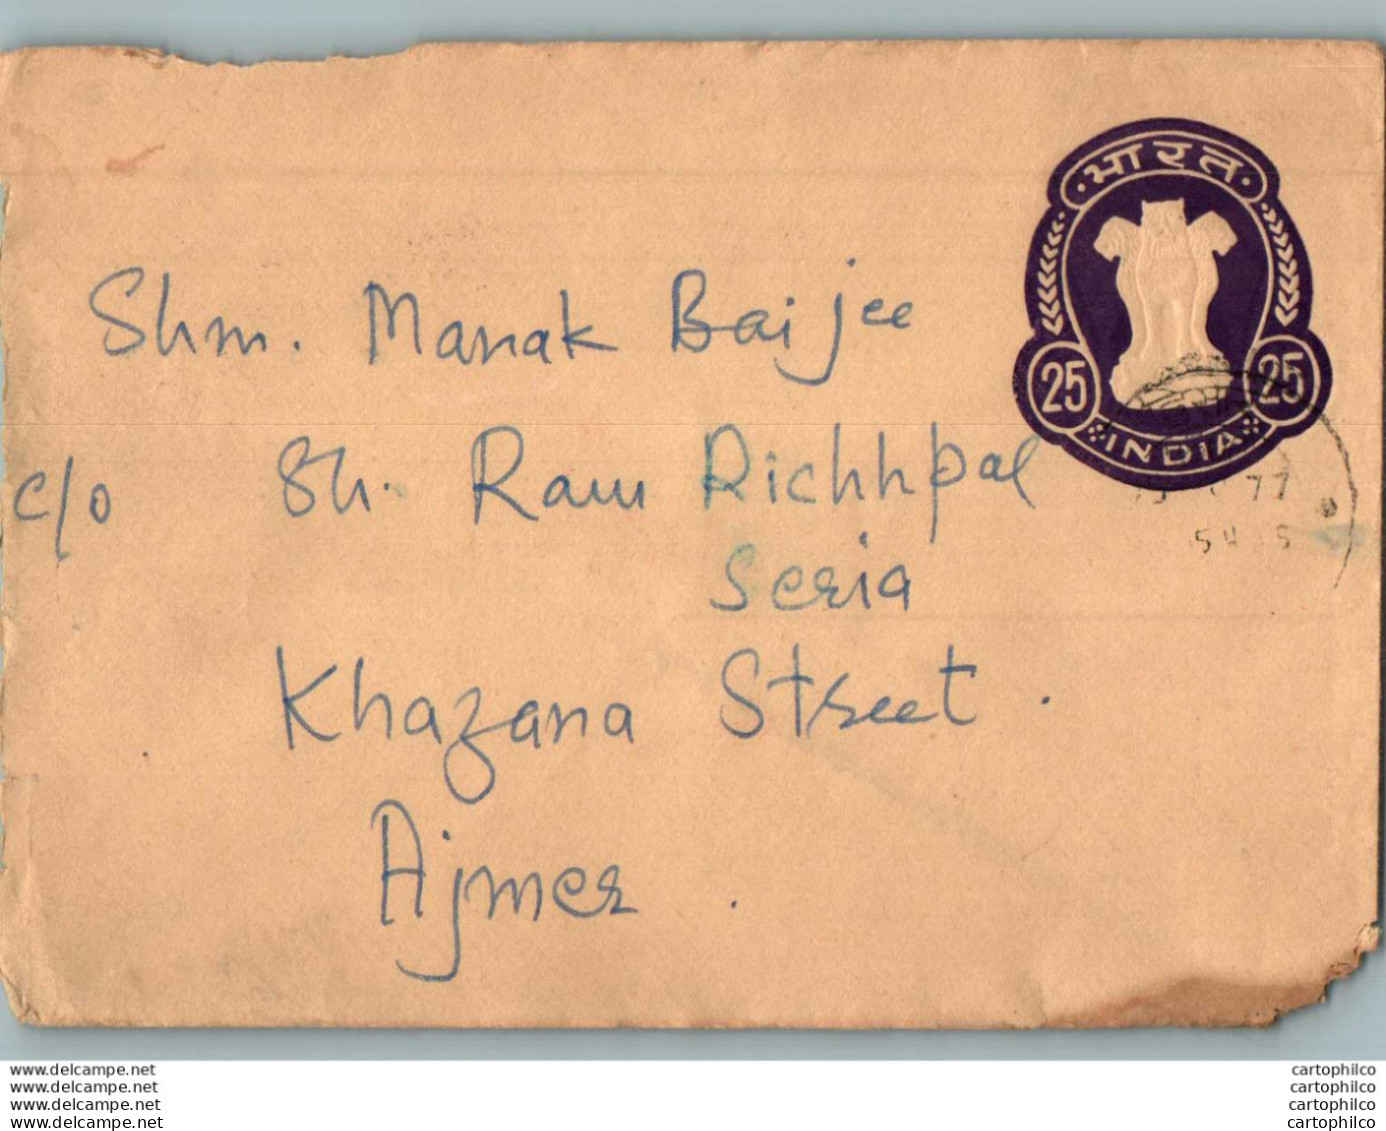 भारत
25 25
INDIA
77
Shm. Manak Baijee
c/o Sh. Ram Richhpal
Seria
Khazana Street.
Ajmer.
www.delcampe.net
www.delcampe.net
www.delcampe.net
www.delcampe.net
cartophilco
cartophilco
cartophilco
cartophilco